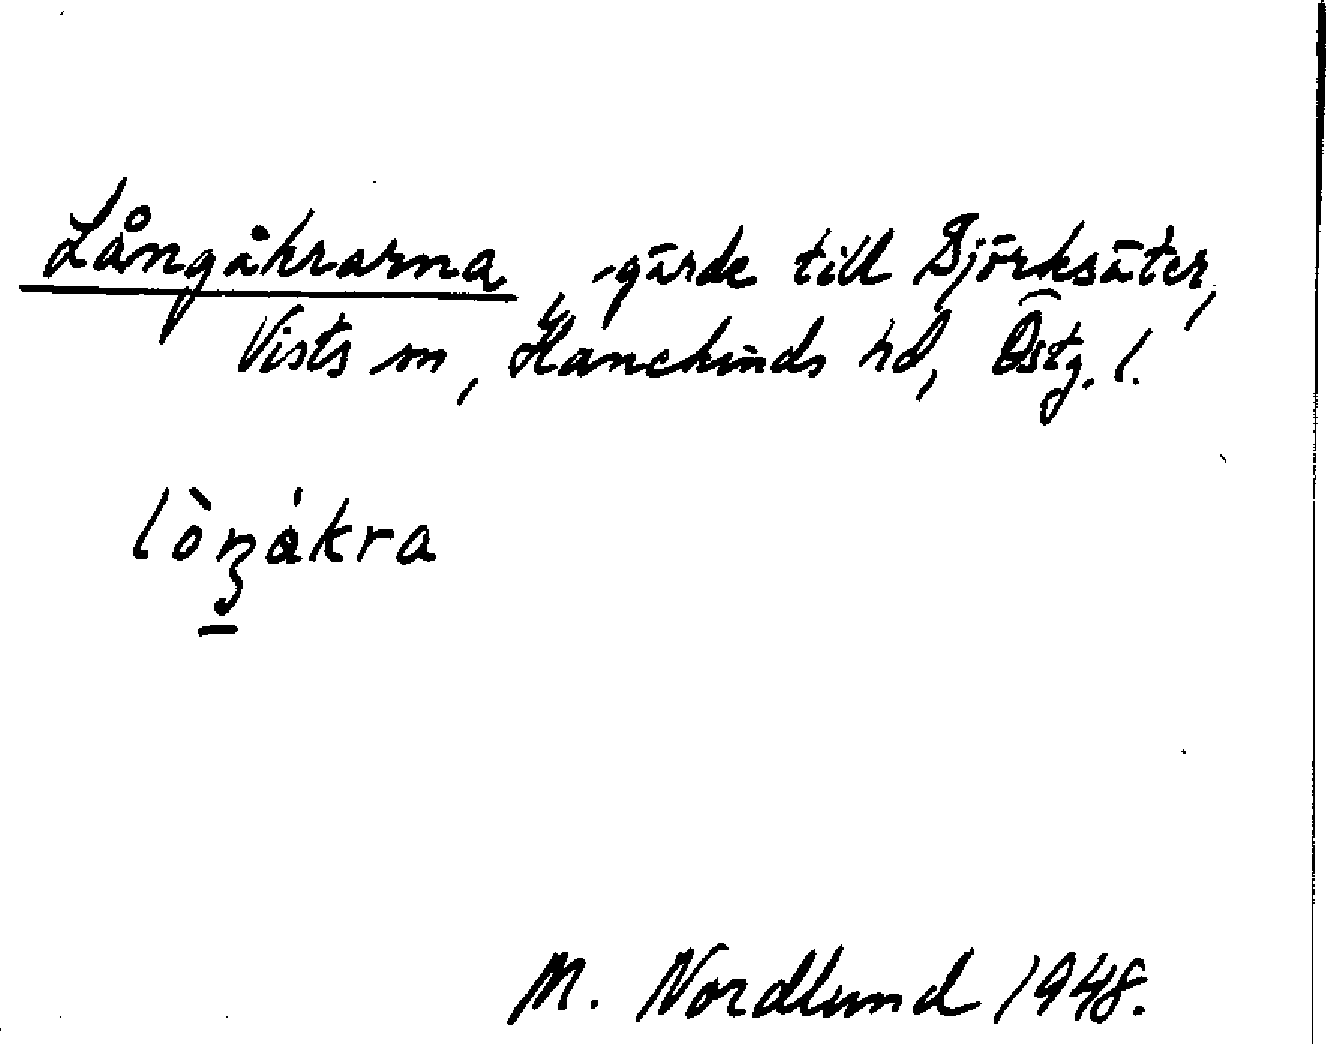 Långåkrarna, gärde till Björksäter,
Vists sn, Hanekinds hd, Östg. l.
lòŋåkra
M. Nordlund 1948.